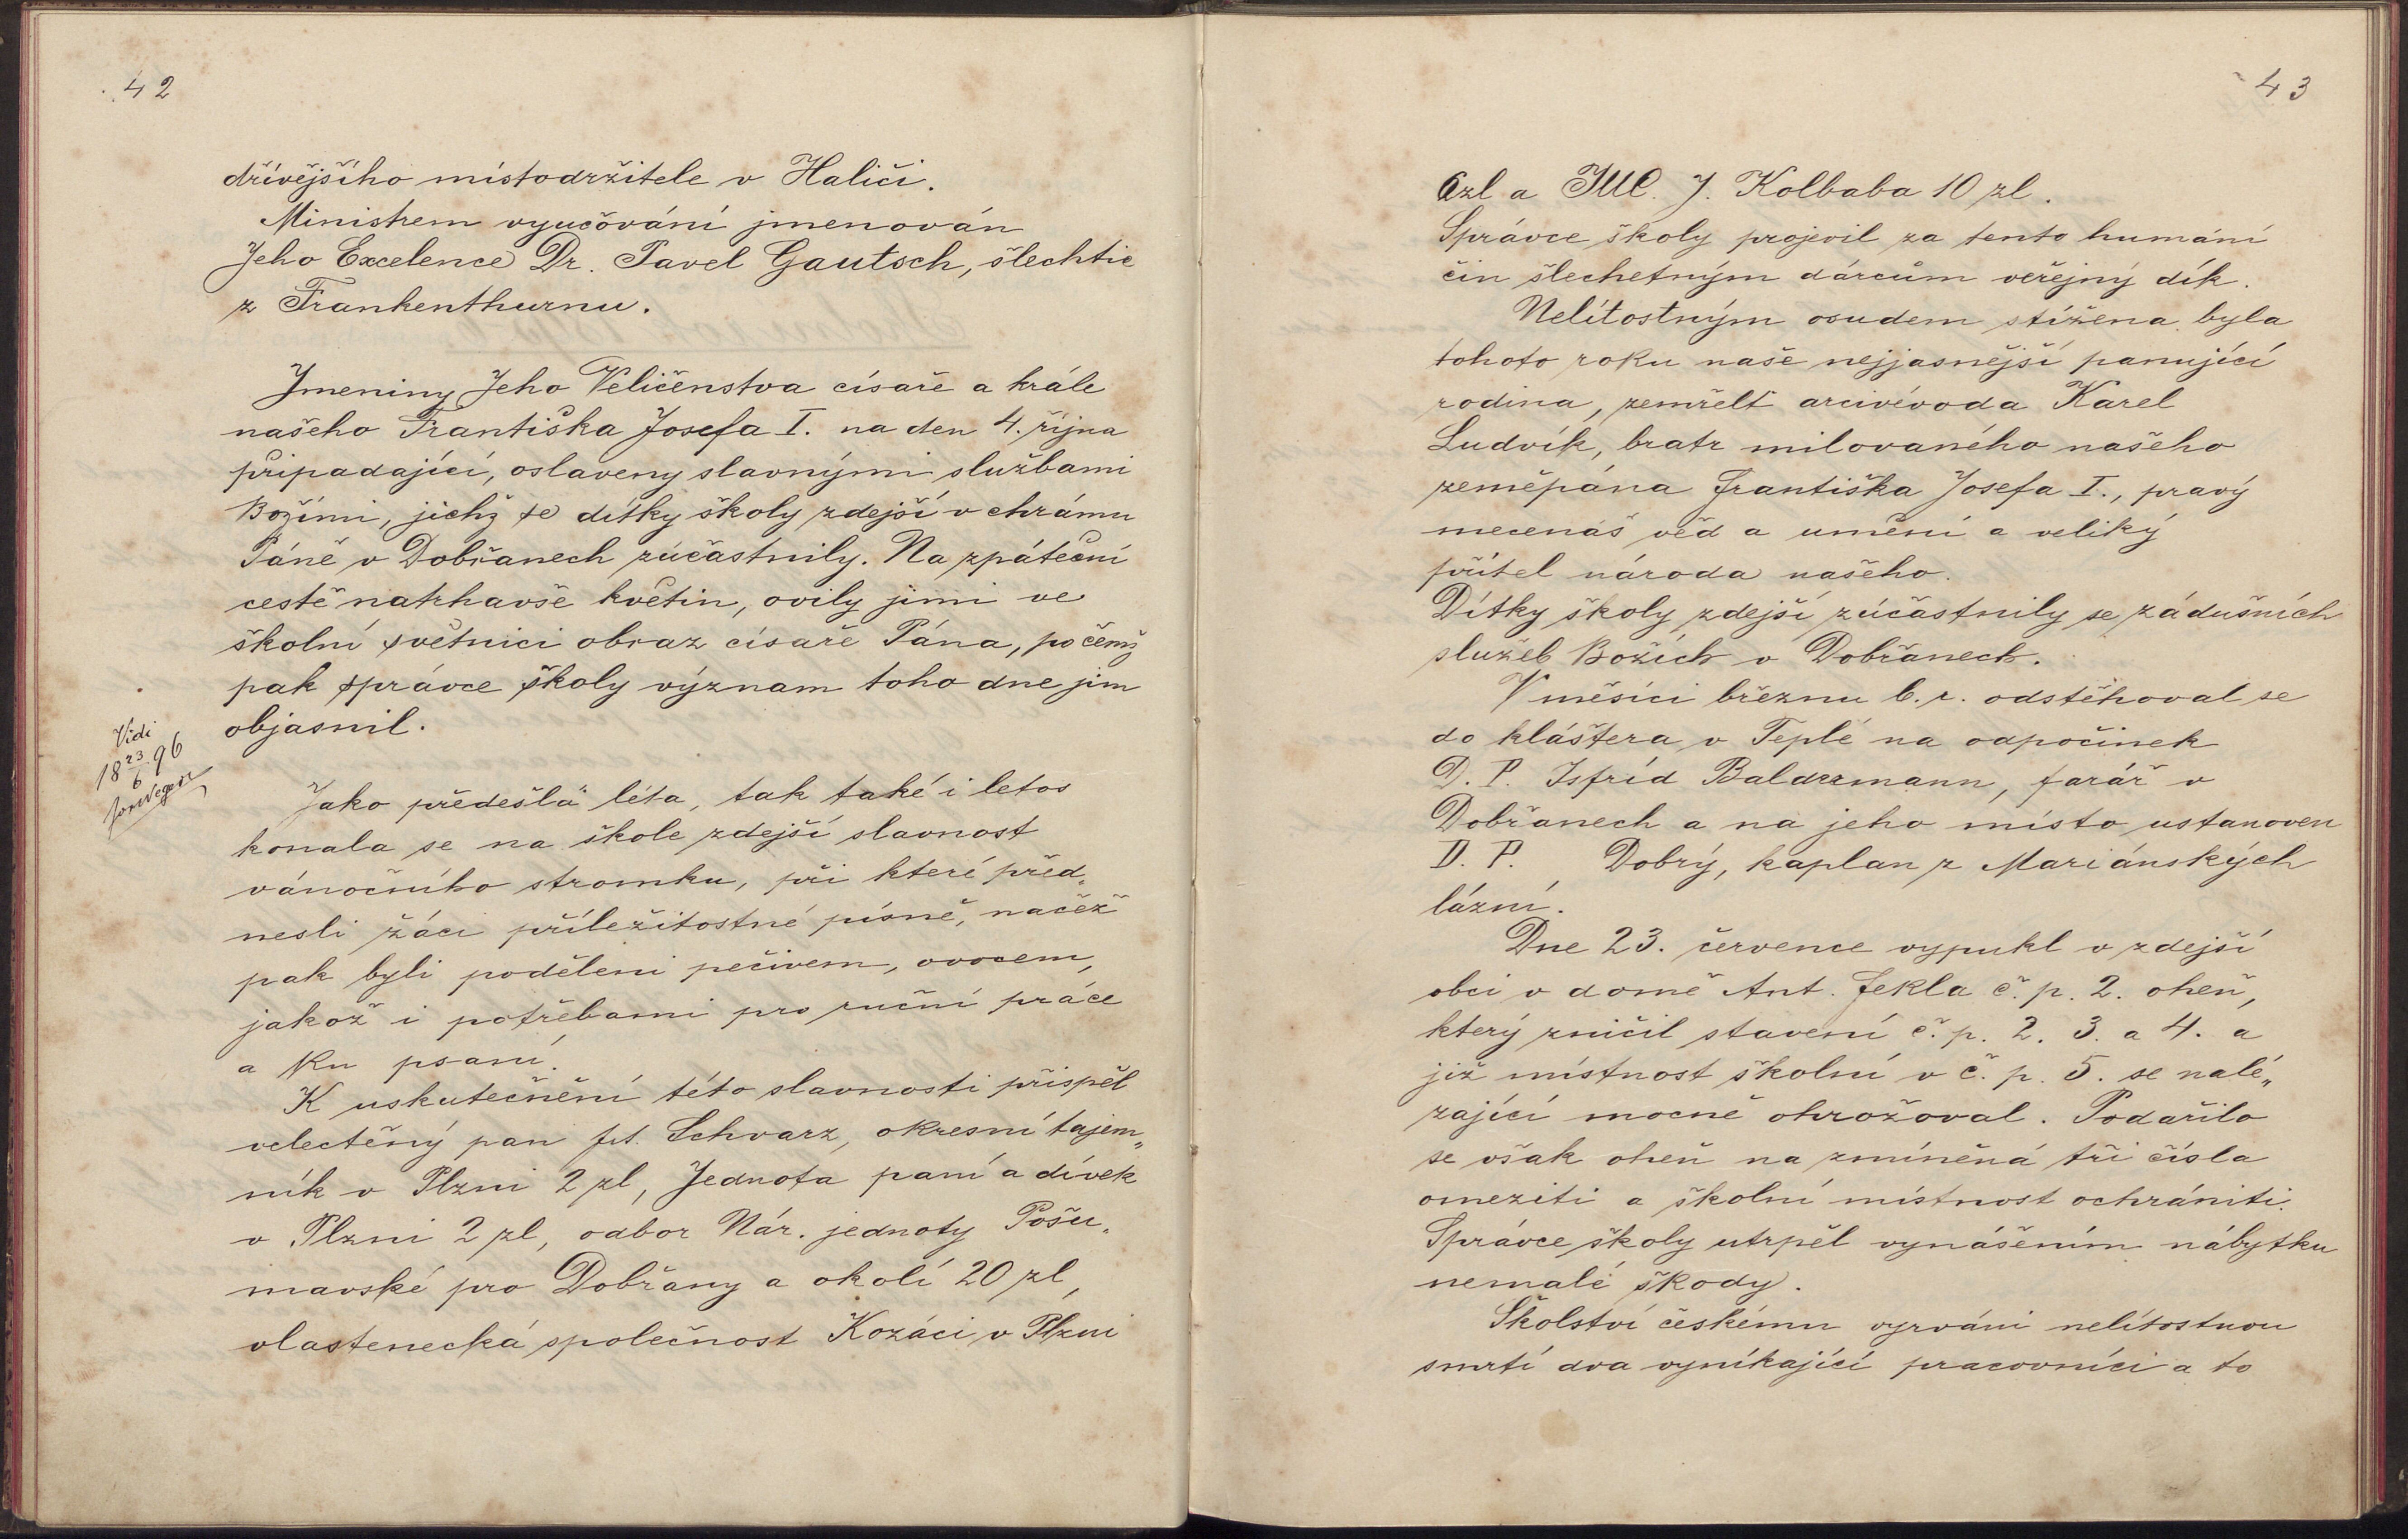 42
dřívějšího místodržitele v Haliči.
Ministrem vyučování jmenován
Jeho Excelence Dr. Pavel Gautsch, šlechtic
z Frankenthurnu.
Jmeniny Jeho Veličenstva císaře a krále
našeho Františka Josefa I. na den 4. října
připadající, oslaveny slavnými službami
Božími, jichž se dítky školy zdejší v chrámu
Páně v Dobřanech zúčastnily. Na zpáteční
cestě natrhavše květin, ovily jimi ve
školní světnici obraz císaře Pána, po čemž
pak správce školy význam toho dne jim
objasnil.
Vidi
18 23/6 96
Jako předešlá léta, tak také i letos
konala se na škole zdejší slavnost
vánočního stromku, při které před„
nesli žáci příležitostné písně, načež
pak byli poděleni pečivem, ovocem,
jakož i potřebami pro ruční práce
a ku psaní.
K uskutečnění této slavnosti přispěl
velectěný pan Schvarz, okresní tajem„
ník v Plzni 2 zl, Jednota paní a dívek
v Plzni 2 zl, odbor Nár. jednoty Pošu„
mavské pro Dobřany a okolí 20 zl,
vlastenecká společnost Kozáci v Plzni
43
6 zl a JUC. J. Kolbaba 10 zl.
Správce školy projevil za tento humání
čin šlechetným dárcům veřejný dík.
Nelítostným osudem stížena byla
tohoto roku naše nejjasnější panující
rodina, zemřelť arcivévoda Karel
Ludvík, bratr milovaného našeho
zeměpána Františka Josefa I., pravý
mecenáš věd a umění a veliký
přítel národa našeho.
Dítky školy zdejší zúčastnily se zádušních
služeb Božích v Dobřanech.
V měsíci březnu b. r. odstěhoval se
do kláštera v Teplé na odpočinek
D. P. Isfríd Baldermann, farář v
Dobřanech a na jeho místo ustanoven
D. P. Dobrý, kaplan z Mariánských
lázní.
Dne 23. července vypukl v zdejší
obci v domě Ant. Jekla č. p. 2. oheň,
který zničil stavení č. p. 2. 3. a 4. a
již místnost školní v č. p. 5. se nalé„
zající mocně ohrožoval. Podařilo
se však oheň na zmíněná tři čísla
omeziti a školní místnost ochrániti.
Správce školy utrpěl vynášením nábytku
nemalé škody.
Školství českému vyrváni nelítostnou
smrtí dva vynikající pracovníci a to